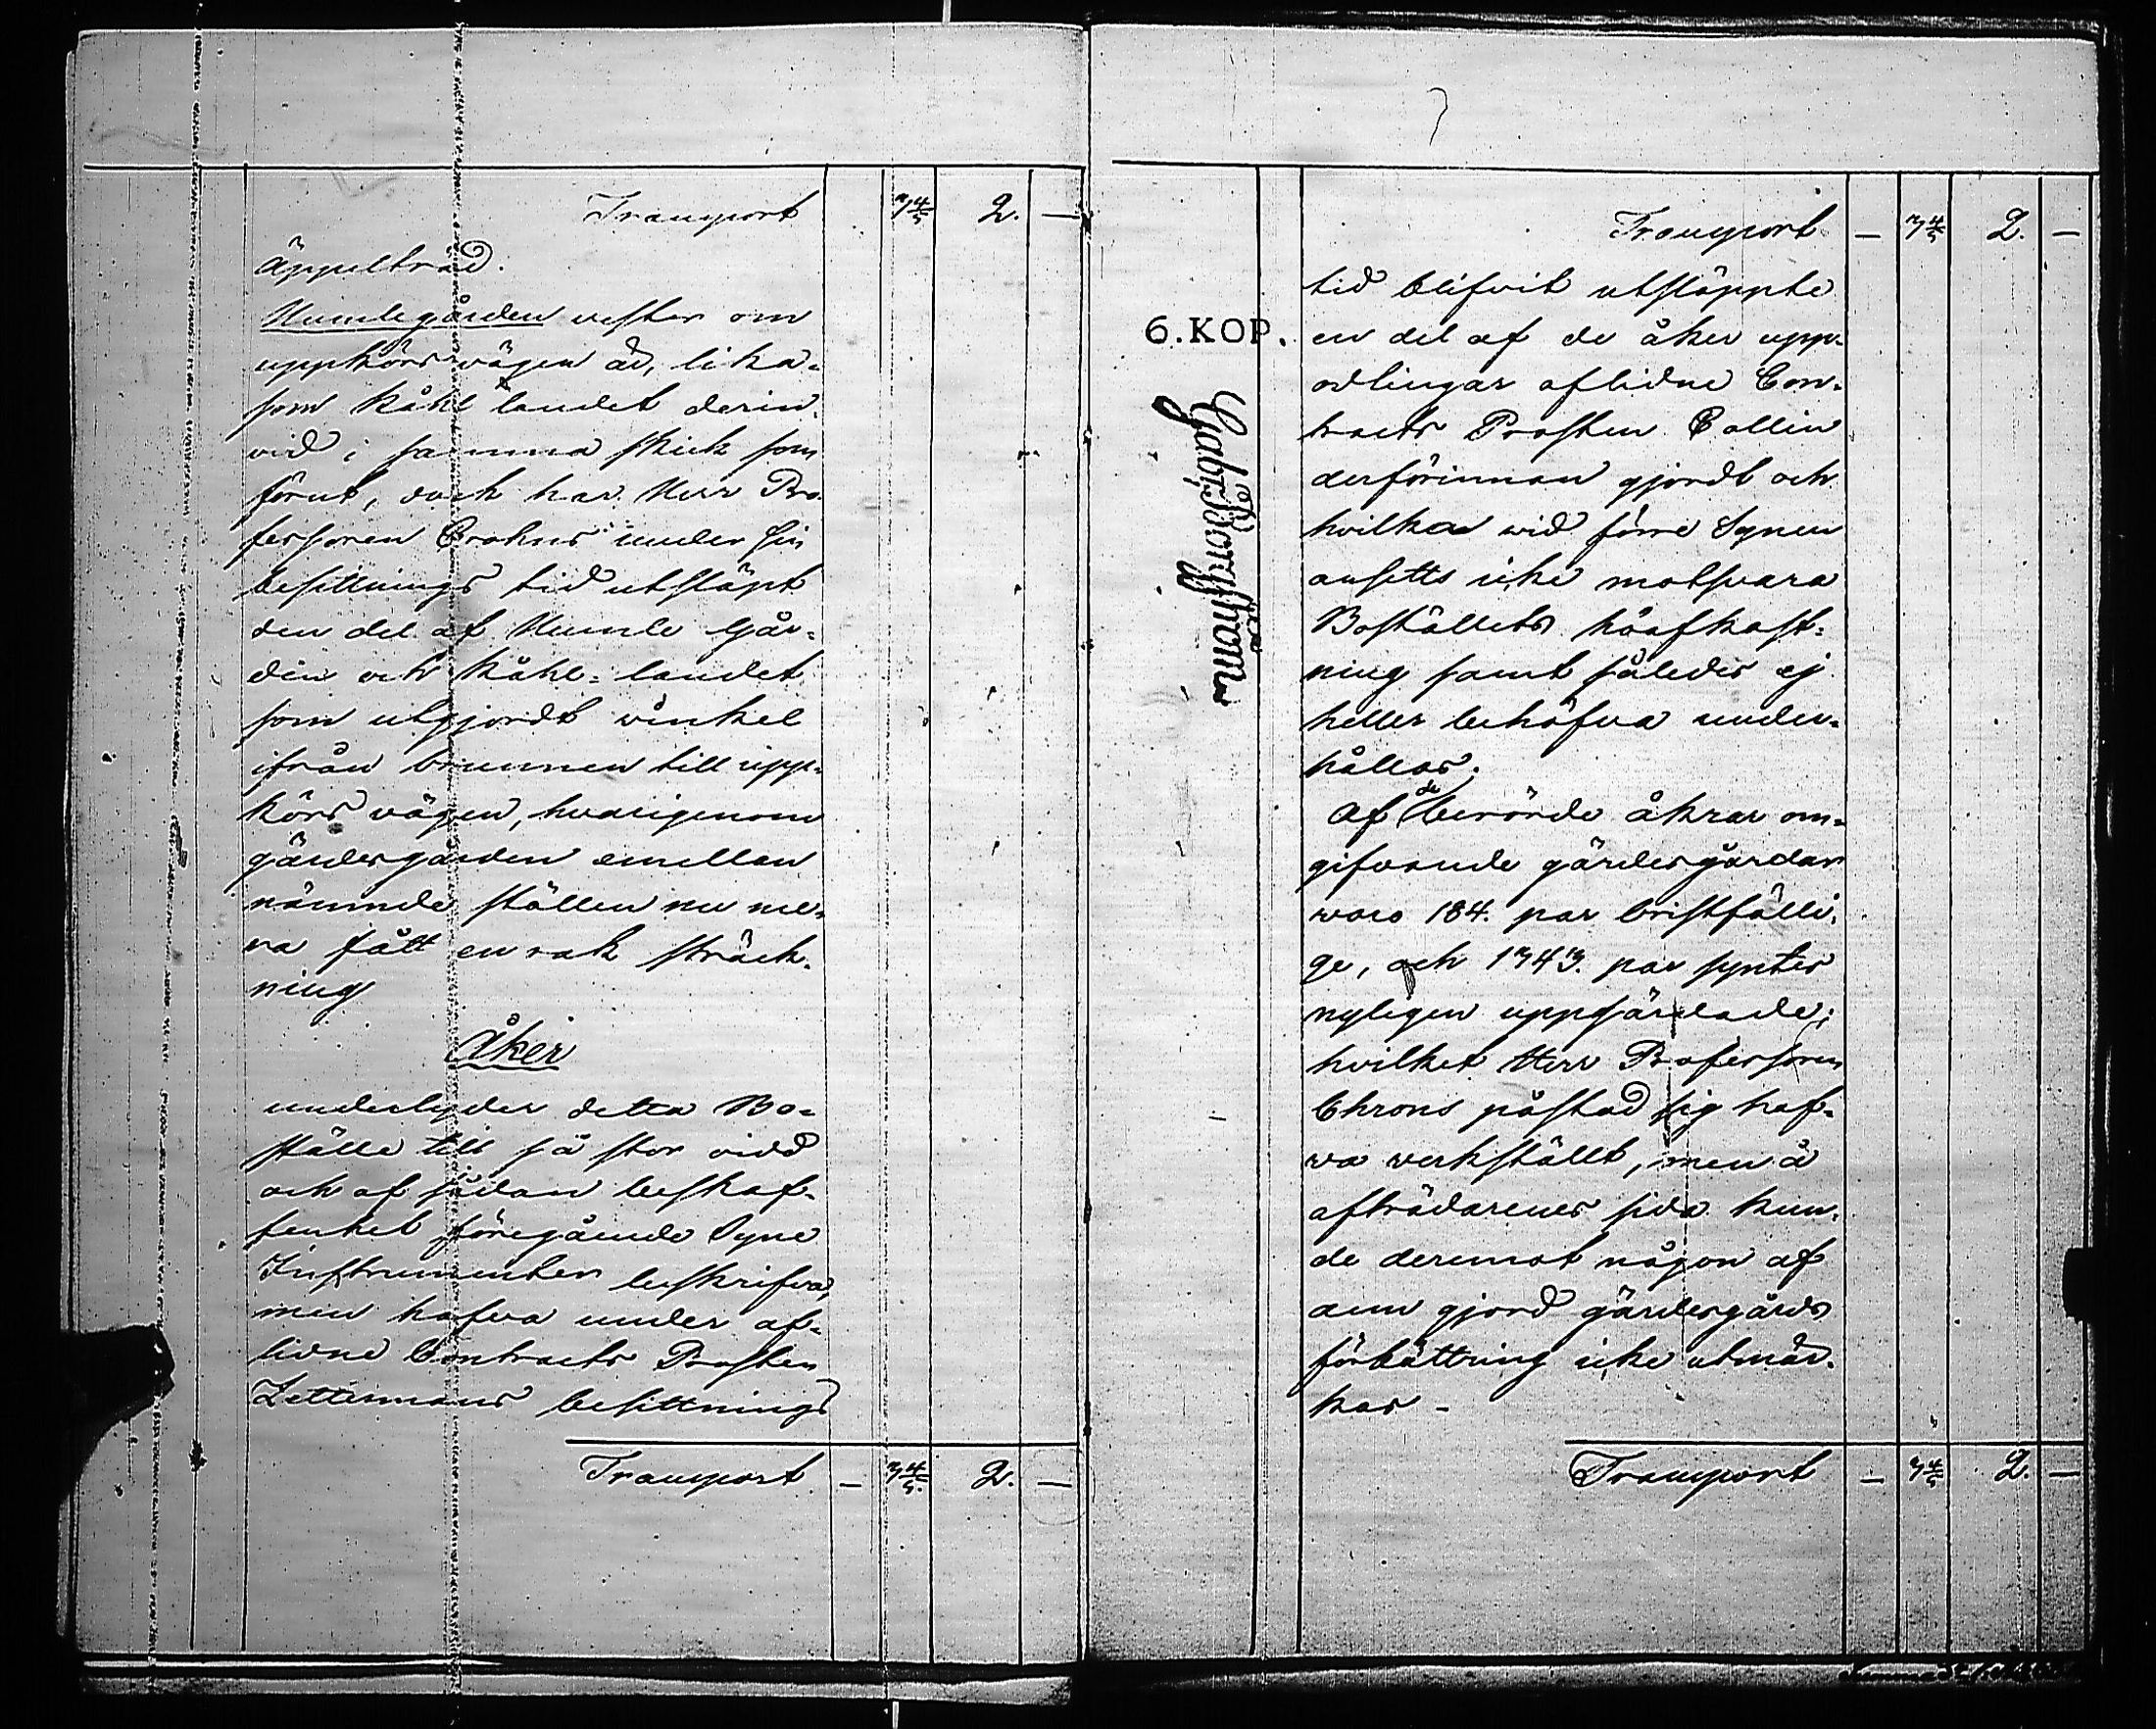 Transport 7 4/5 2. —
Äppelträd.
Humlegården vester om
uppkörs vägen är, lika-
som Kåhl landet derin-
vid i samma skick som
förut, dock har Herr Pro-
fessoren Crohns under sin
besittnings tid utsläpt
den del af Humle Går-
den och Kåhl-landet
som utgjordt vinkel
ifrån brunnen till upp-
körs vägen, hvarigenom
gärdesgården emellan
nämnde ställen nu me-
ra fått en rak sträck-
ning
Åker
underlyder detta Bo-
ställe till så stor vidd
och af sådan beskaf-
fenhet föregående Syne
Instrumenter beskrifva,
men hafva under af-
lidne Contracts Prosten
Zettermans besittnings
Transport — 7 4/5. 2. —
7
Transport — 7 4/5 2. —
tid blifvit utsläppte
6. KOP.
en del af de åker upp-
odlingar aflidne Con-
tracts Prosten Collin
derförinnan gjordt och
hvilka vid förre Synen
ansetts icke motsvara
Boställets höafkast-
ning samt således ej
heller behöfva under-
hållas.
Af de berörde åkrar om-
gifvande gärdesgårdar
voro 184. par bristfälli-
ge, och 1743. par syntes
nyligen uppgärdade;
hvilket Herr Professoren
Chrons påstod sig haf-
va verkställt, men å
afträdarenes sida kun-
de deremot någon af
dem gjord gärdesgårds
förbättring icke utmär-
kas -
Transport — 7 4/5 2. —